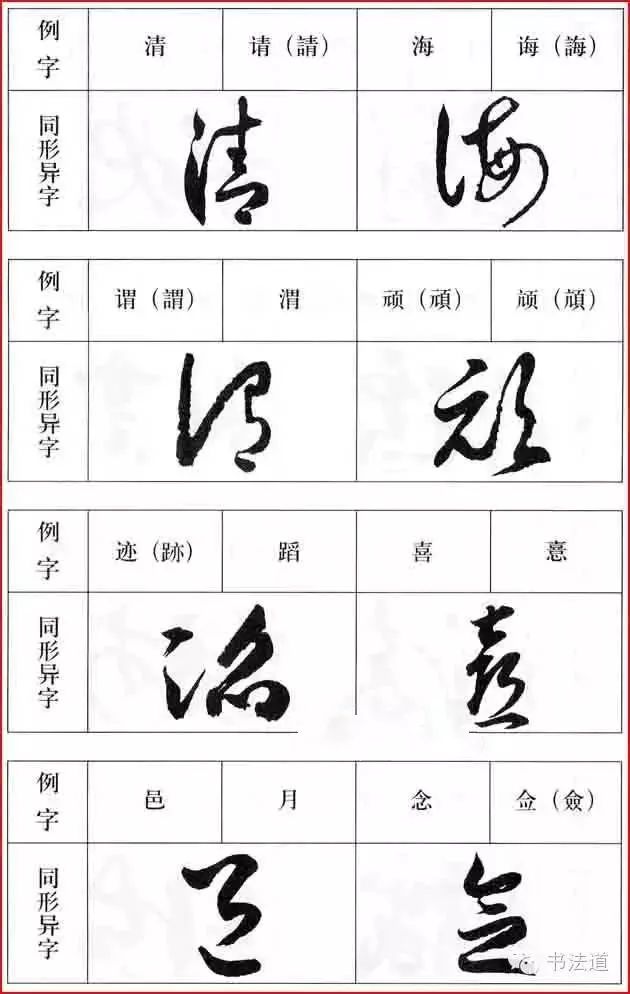 例字 清 请（請） 海 诲（誨）
同形异字
例字 谓（謂） 渭 顽（頑）
同形异字
例字 迹（跡） 蹈 喜 憙
同形异字
例字 邑 月 念 佥（僉）
同形异字
书法道